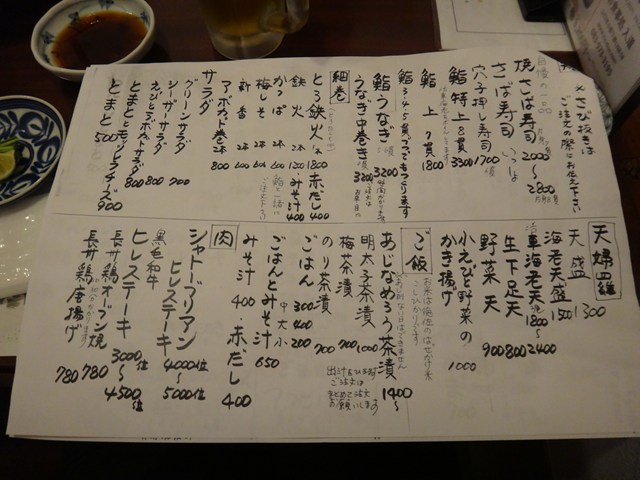 ※さび抜きは
ご注文の際にお伝え下さい
焼さば寿司 2000〜2800
さば寿司
穴子押し寿司 1700
鮨 特上8貫 3300
鮨 上 7貫 1800
鮨 3・4・5貫
鮨うなぎ 3200
うなぎ中巻き 3200
細巻
とろ鉄火 1本 1800
赤だし 400
鉄火 2本 1200
みそ汁 400
かっぱ 2本 400
梅しそ 2本 600
新香 2本 400
アボカド巻 2本 800
サラダ
グリーンサラダ 700
シーザーサラダ 800
えびとアボカドサラダ 800
とまととモッツァレラチーズ 900
とまと 500
天婦羅
天盛 1300
海老天盛 1500
車海老天 1800〜2400
生下足天 800
野菜天 900
小えびと野菜の
かき揚げ 1000
ご飯
あじなめろう茶漬 1400〜
明太子茶漬 1000
梅茶漬 700
のり茶漬 700
ごはん 大 400 中 300 小 200
ごはんとみそ汁 650
みそ汁 400・赤だし 400
出汁
ご注文は
まとめて
お願いします
肉
シャトーブリアン
ヒレステーキ 4000位〜5000位
黒毛和牛
ヒレステーキ 3000位〜4500位
長州鶏オーブン焼 780
長州鶏唐揚げ 780